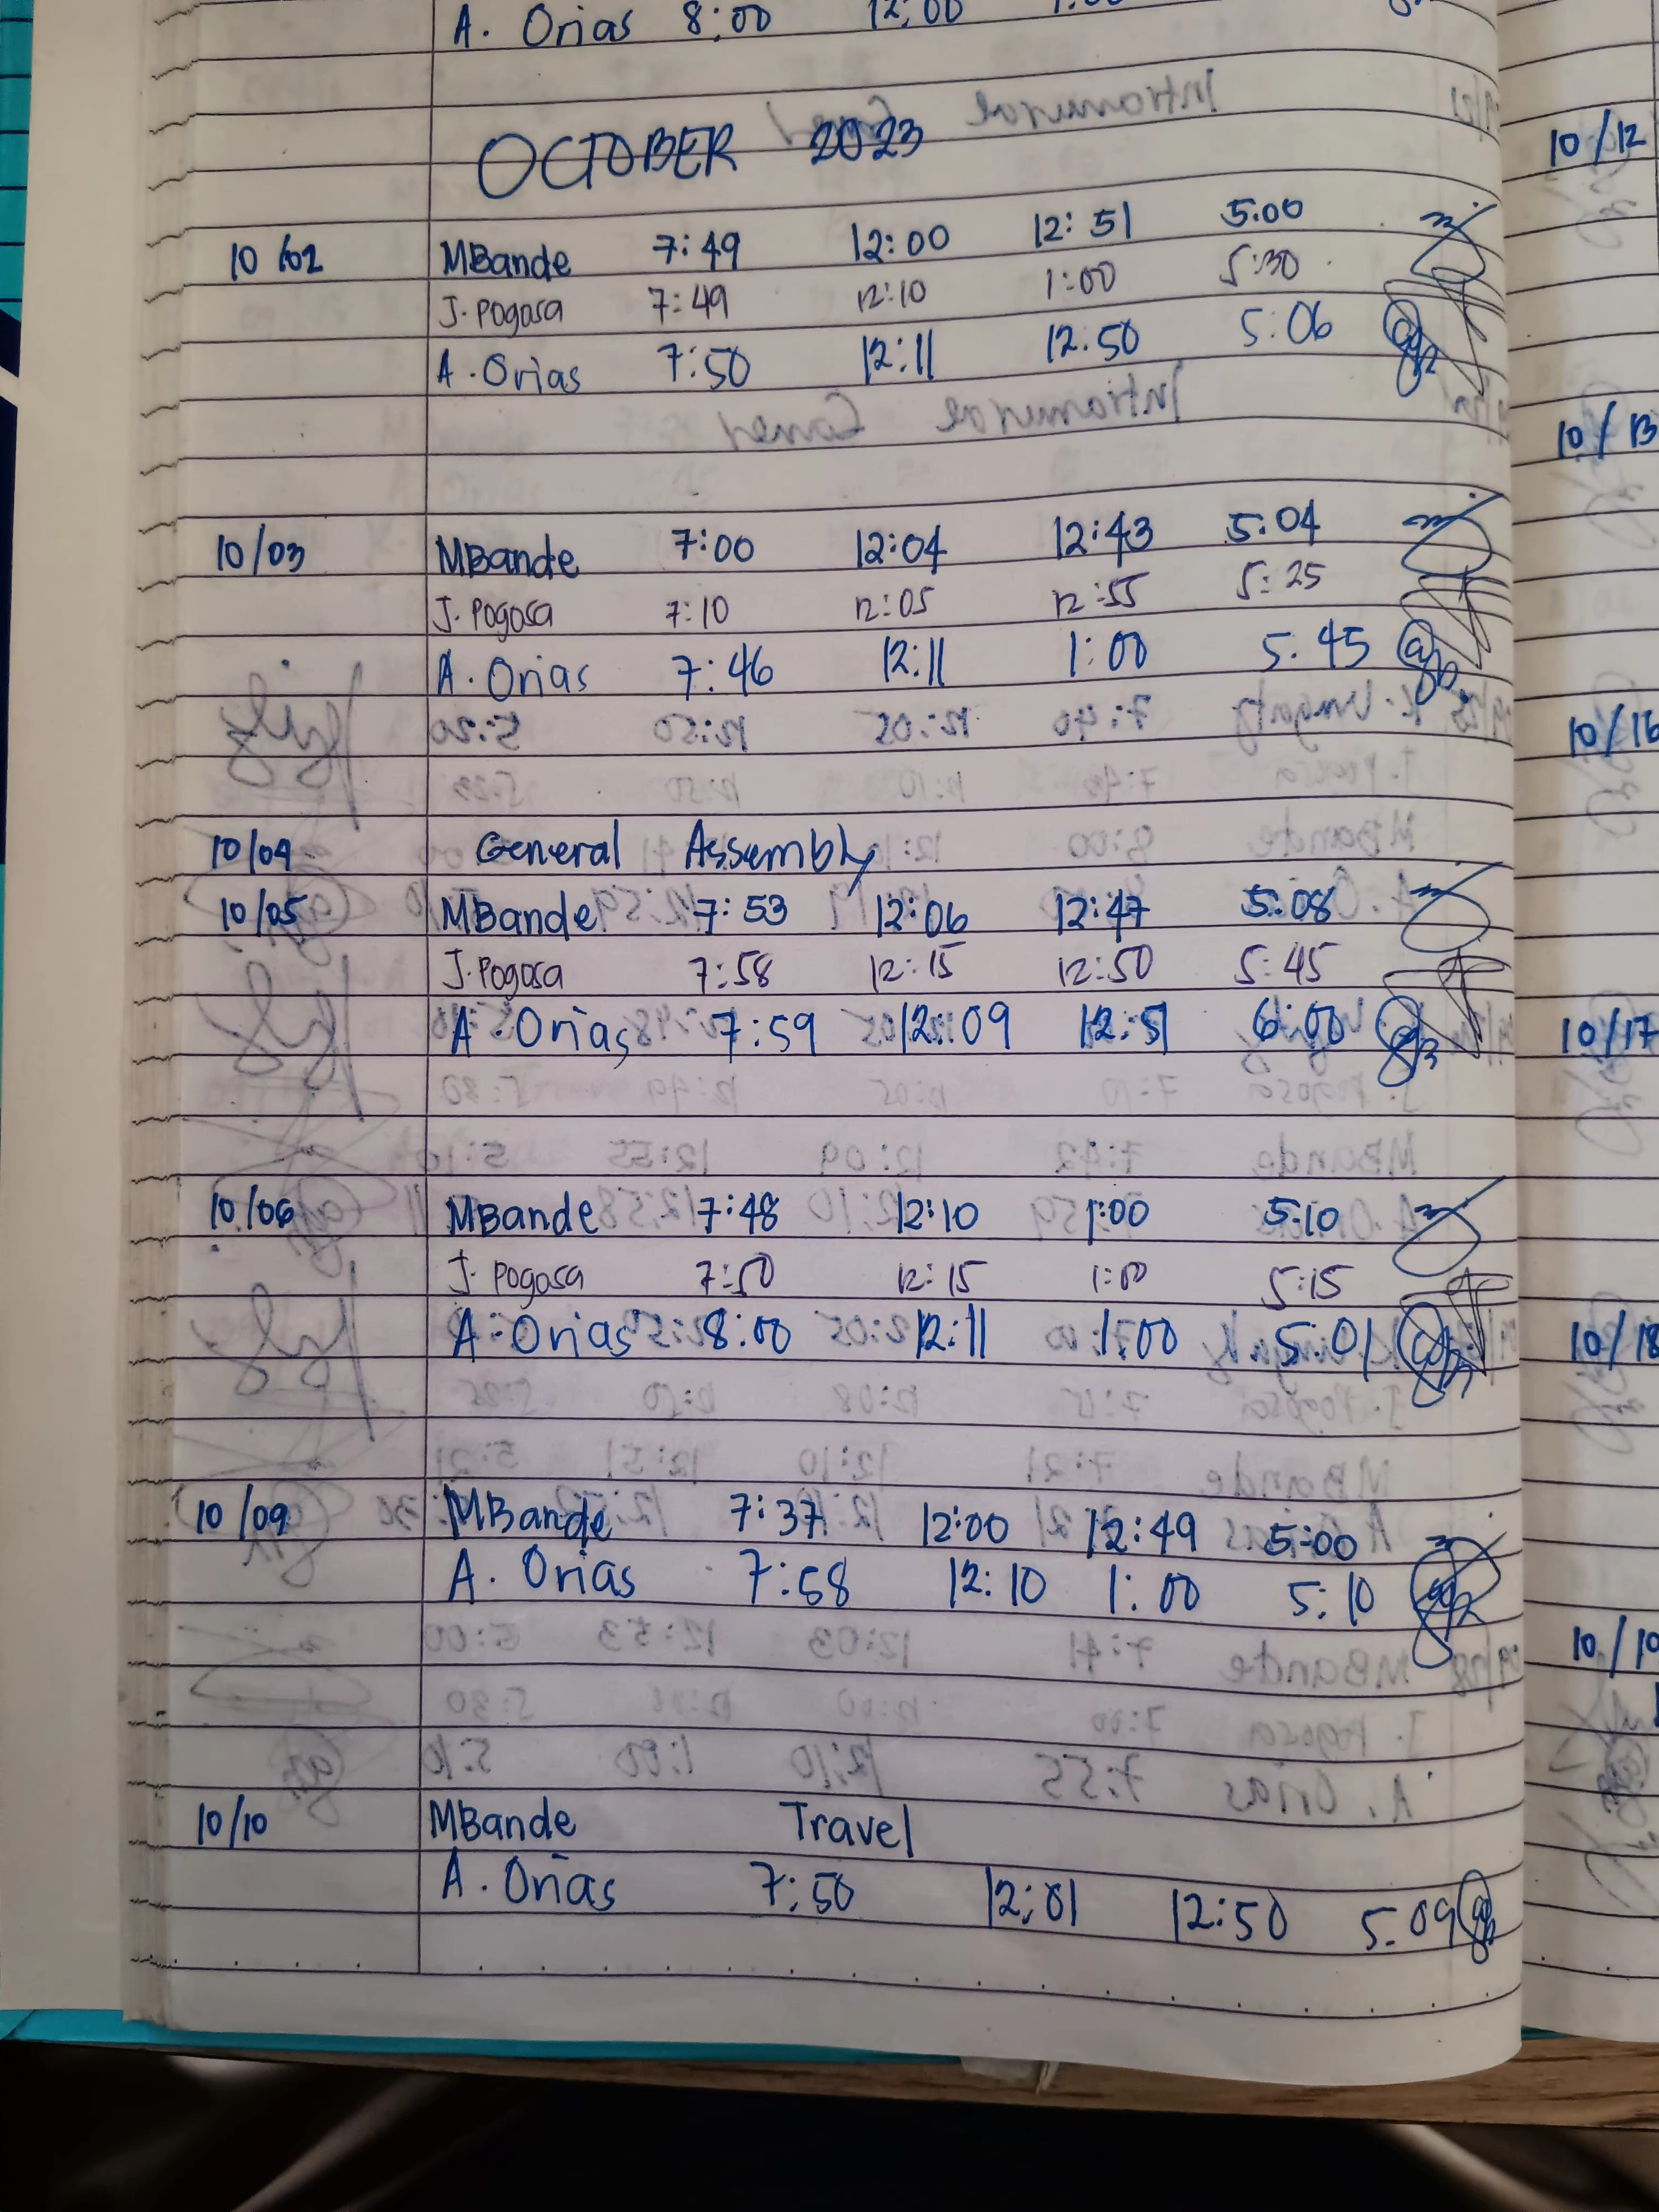 A. Orias 8:00 12:00
OCTOBER 2023
10/02 MBande 7:49 12:00 12:51 5:00
J. Pogosa 7:49 12:10 1:00 5:30
A. Orias 7:50 12:11 12:50 5:06
10/03 MBande 7:00 12:04 12:43 5:04
J. Pogosa 7:10 12:05 12:55 5:25
A. Orias 7:46 12:11 1:00 5:45
10/04 General Assembly
10/05 MBande 7:53 12:06 12:47 5:08
J. Pogosa 7:58 12:15 12:50 5:45
A. Orias 7:59 12:09 12:51 6:00
10/06 MBande 7:48 12:10 1:00 5:10
J. Pogosa 7:50 12:15 1:00 5:15
A. Orias 8:00 12:11 1:00 5:01
10/09 MBande 7:37 12:00 12:49 5:00
A. Orias 7:58 12:10 1:00 5:10
10/10 MBande Travel
A. Orias 7:50 12:01 12:50 5:09
10/12
10/13
10/16
10/17
10/18